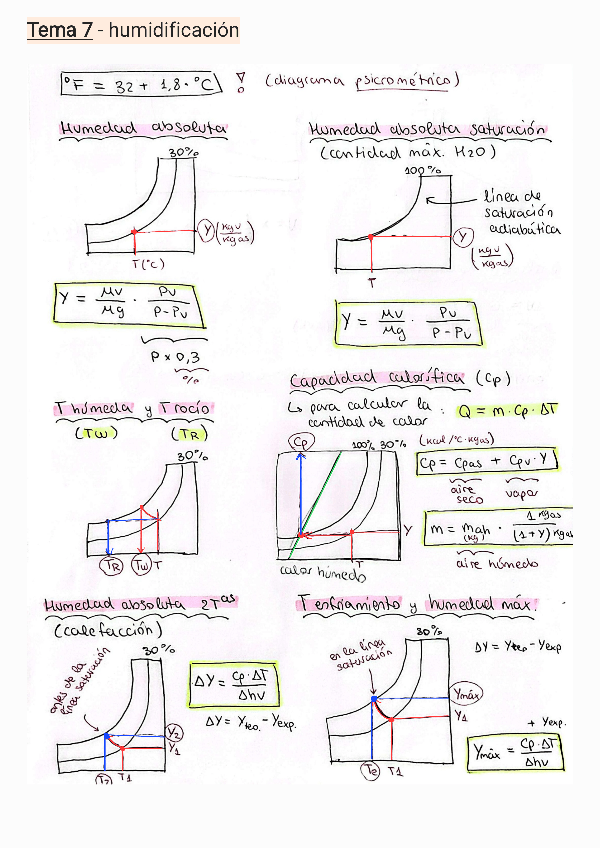 Tema 7 - humidificación
°F = 32 + 1,8 · °C ! (diagrama psicrométrico)
Humedad absoluta
30%
Y (kgv/kgas)
T (°C)
Y = Mv/Mg · Pv/P-Pv
P x 0,3
%
Humedad absoluta saturación
(cantidad máx. H2O)
100%
línea de
saturación
adiabática
Y
(kgv/kgas)
T
Y = Mv/Mg · Pv/P-Pv
T húmeda y T rocío
(Tw) (TR)
30%
TR Tw T
Capacidad calorífica (Cp)
↳ para calcular la
cantidad de calor : Q = m · Cp · ΔT
Cp
100% 30%
Y
T
calor húmedo
(kcal/°C·kgas)
Cp = Cpas + Cpv · Y
aire
seco
vapor
m = mah (kg) · 1 kgas/(1+Y) kgas
aire húmedo
Humedad absoluta 2Tas
(calefacción)
30%
antes de la
línea saturación
Y2
Y1
T2 T1
ΔY = Cp·ΔT/Δhv
ΔY = Yteo. - Yexp.
T enfriamiento y humedad máx.
30%
en la línea
saturación
Ymáx
Y1
Te T1
ΔY = Yteo - Yexp
+ Yexp.
Ymáx = Cp·ΔT/Δhv